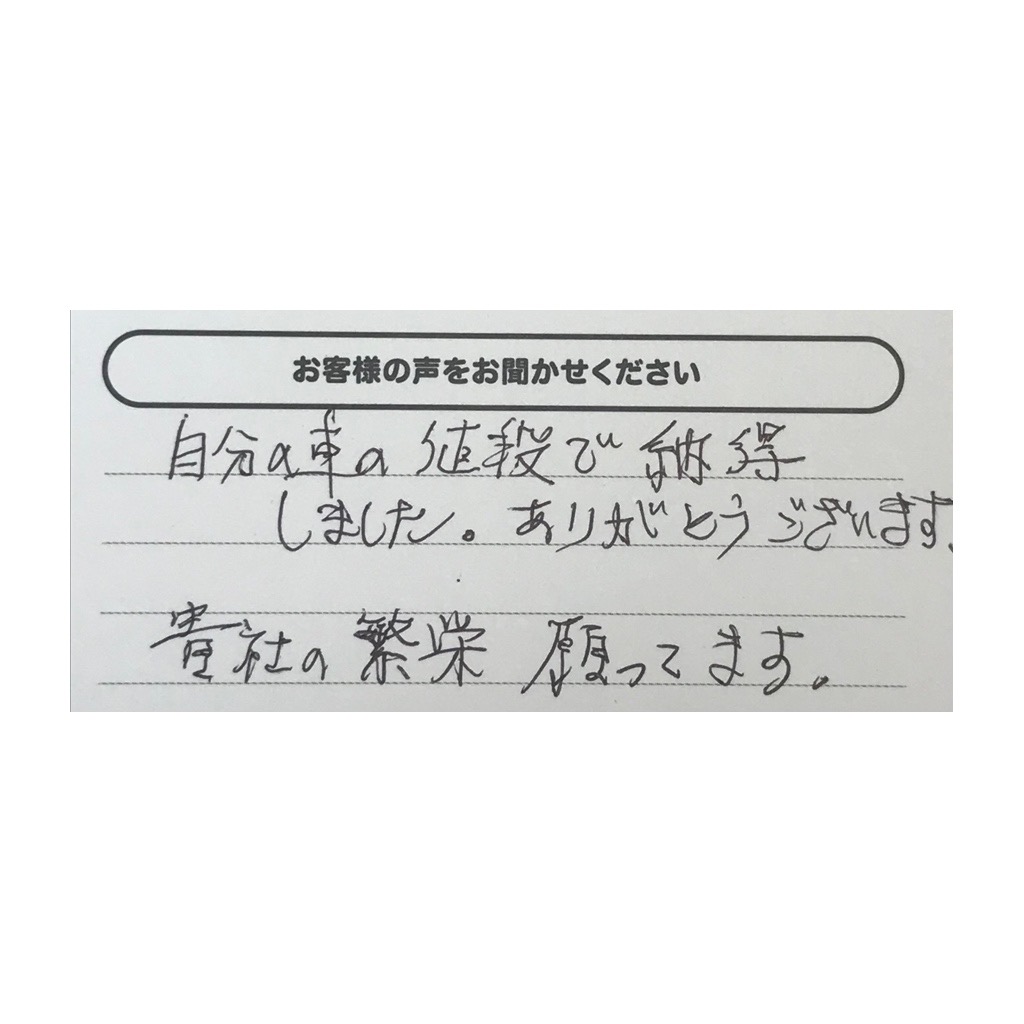 お客様の声をお聞かせください
自分の車の値段で納得
しました。ありがとうございます。
貴社の繁栄 願ってます。